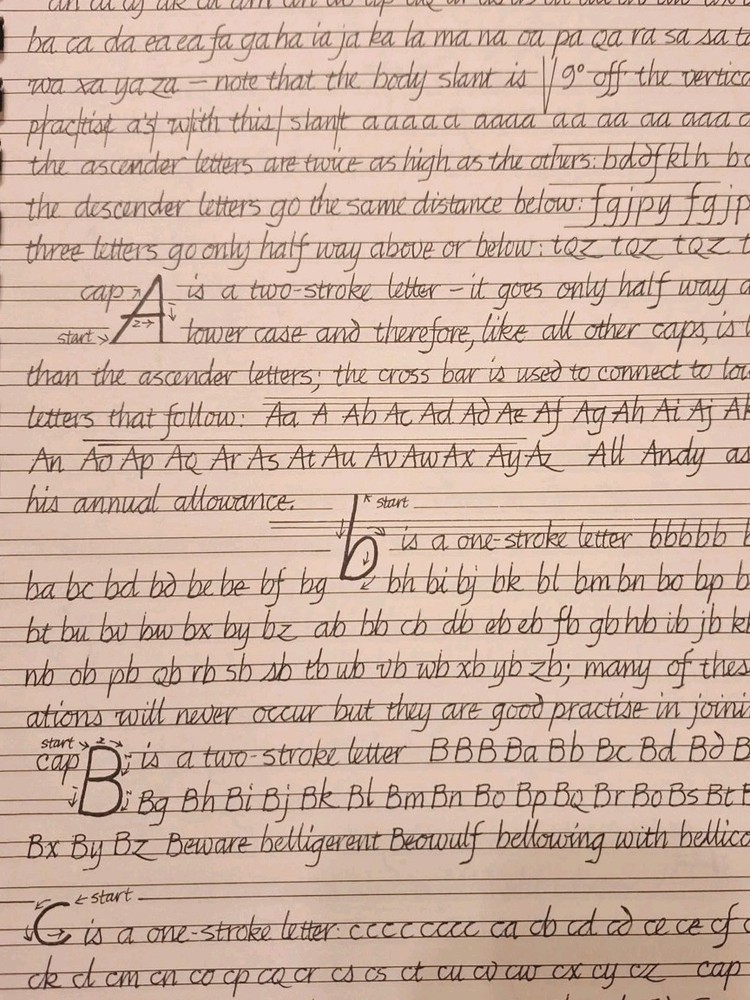 ba ca da ea ea fa ga ha ia ja ka la ma na oa pa qa ra sa sa ta
wa xa ya za – note that the body slant is 9° off the vertica
practise a's with this slant aaaaa aaaa aa aa aa aaa a
the ascender letters are twice as high as the others: bddfklh b
the descender letters go the same distance below: fgjpy fgjp
three letters go only half way above or below: tqz tqz tqz t
cap A is a two-stroke letter – it goes only half way a
start 2 lower case and therefore, like all other caps, is l
than the ascender letters; the cross bar is used to connect to low
letters that follow: Aa A Ab Ac Ad Ad Ae Af Ag Ah Ai Aj Ak
An Ao Ap Aq Ar As At Au Av Aw Ax Ay Az All Andy as
his annual allowance.
start
b is a one-stroke letter bbbbb b
ba bc bd bd be be bf bg bh bi bj bk bl bm bn bo bp b
bt bu bv bw bx by bz ab bb cb db eb eb fb gb hb ib jb kb
nb ob pb qb rb sb sb tb ub vb wb xb yb zb; many of thes
ations will never occur but they are good practise in joini
start 2
cap B is a two-stroke letter BBB Ba Bb Bc Bd Bd B
Bg Bh Bi Bj Bk Bl Bm Bn Bo Bp Bq Br Bo Bs Bt B
Bx By Bz Beware belligerent Beowulf bellowing with bellico
start
C is a one-stroke letter: cccccccc ca cb cd cd ce ce cf c
ck cl cm cn co cp cq cr cs cs ct cu cv cw cx cy cz cap